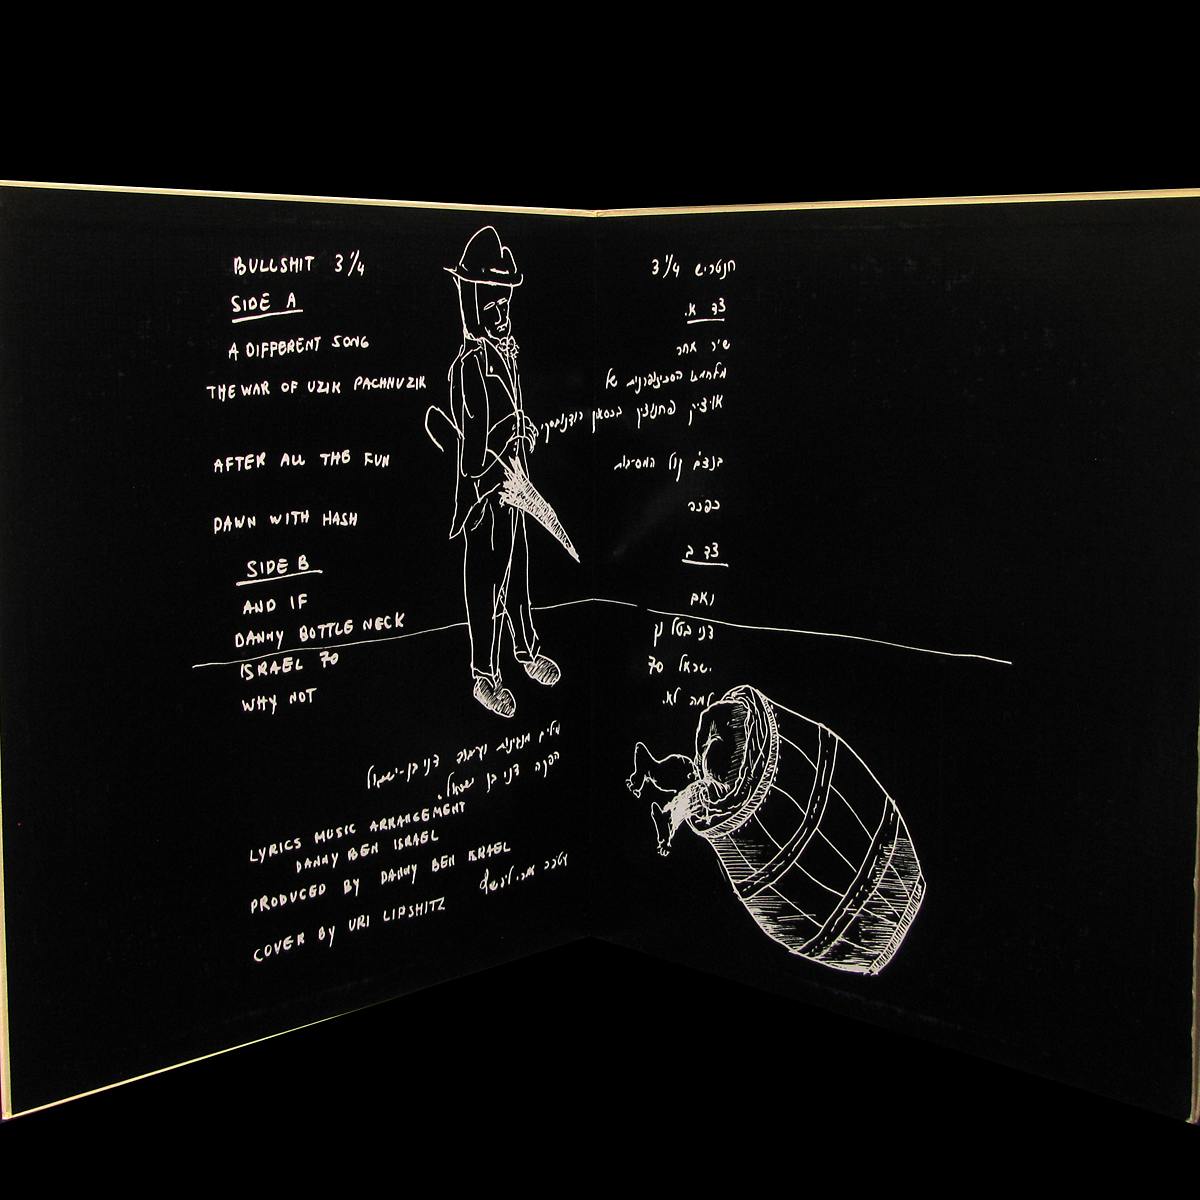 BULLSHIT 3 1/4
SIDE A
A DIFFERENT SONG
THE WAR OF UZIK PACHNUZIK
AFTER ALL THE FUN
DAWN WITH HASH
SIDE B
AND IF
DANNY BOTTLE NECK
ISRAEL 70
WHY NOT
מלים מנגינות ועיבוד דני בן-ישראל
הפקה דני בן ישראל.
LYRICS MUSIC ARRANGEMENT
DANNY BEN ISRAEL
PRODUCED BY DANNY BEN ISRAEL
COVER BY URI LIPSHITZ
חנטריש 3 1/4
צד א.
שיר אחר
של
בסאן
כל המסיבות
צד ב
ואם
דני בטל נק
ישראל 70
למה לא.